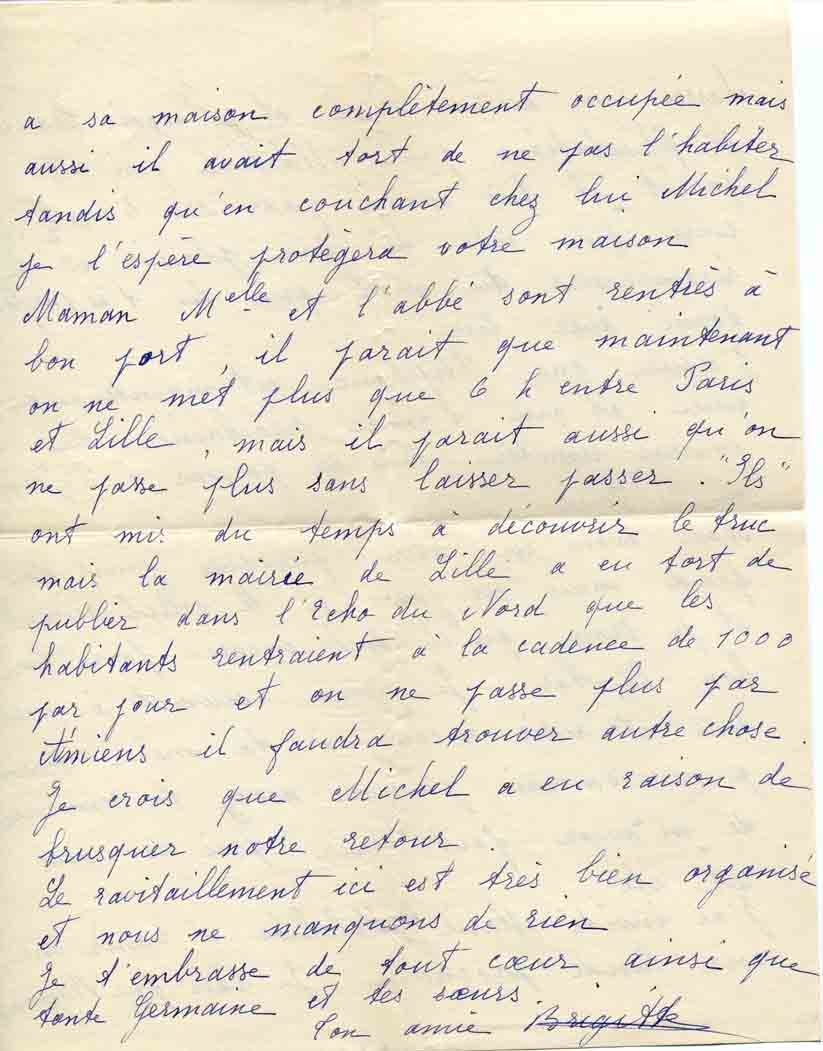 a sa maison complètement occupée mais
aussi il avait tort de ne pas l'habiter
tandis qu'en couchant chez lui Michel
je l'espère protègera votre maison
Maman Melle et l'abbé sont rentrés à
bon port, il parait que maintenant
on ne met plus que 6 h entre Paris
et Lille, mais il parait aussi qu'on
ne passe plus sans laisser passer. "Ils"
ont mis du temps à découvrir le truc
mais la mairie de Lille a eu tort de
publier dans l'Echo du Nord que les
habitants rentraient à la cadence de 1000
par jour et on ne passe plus par
Amiens il faudra trouver autre chose.
Je crois que Michel a eu raison de
brusquer notre retour.
Le ravitaillement ici est très bien organisé
et nous ne manquons de rien
Je t'embrasse de tout cœur ainsi que
tante Germaine et tes sœurs.
Ton amie Brigitte